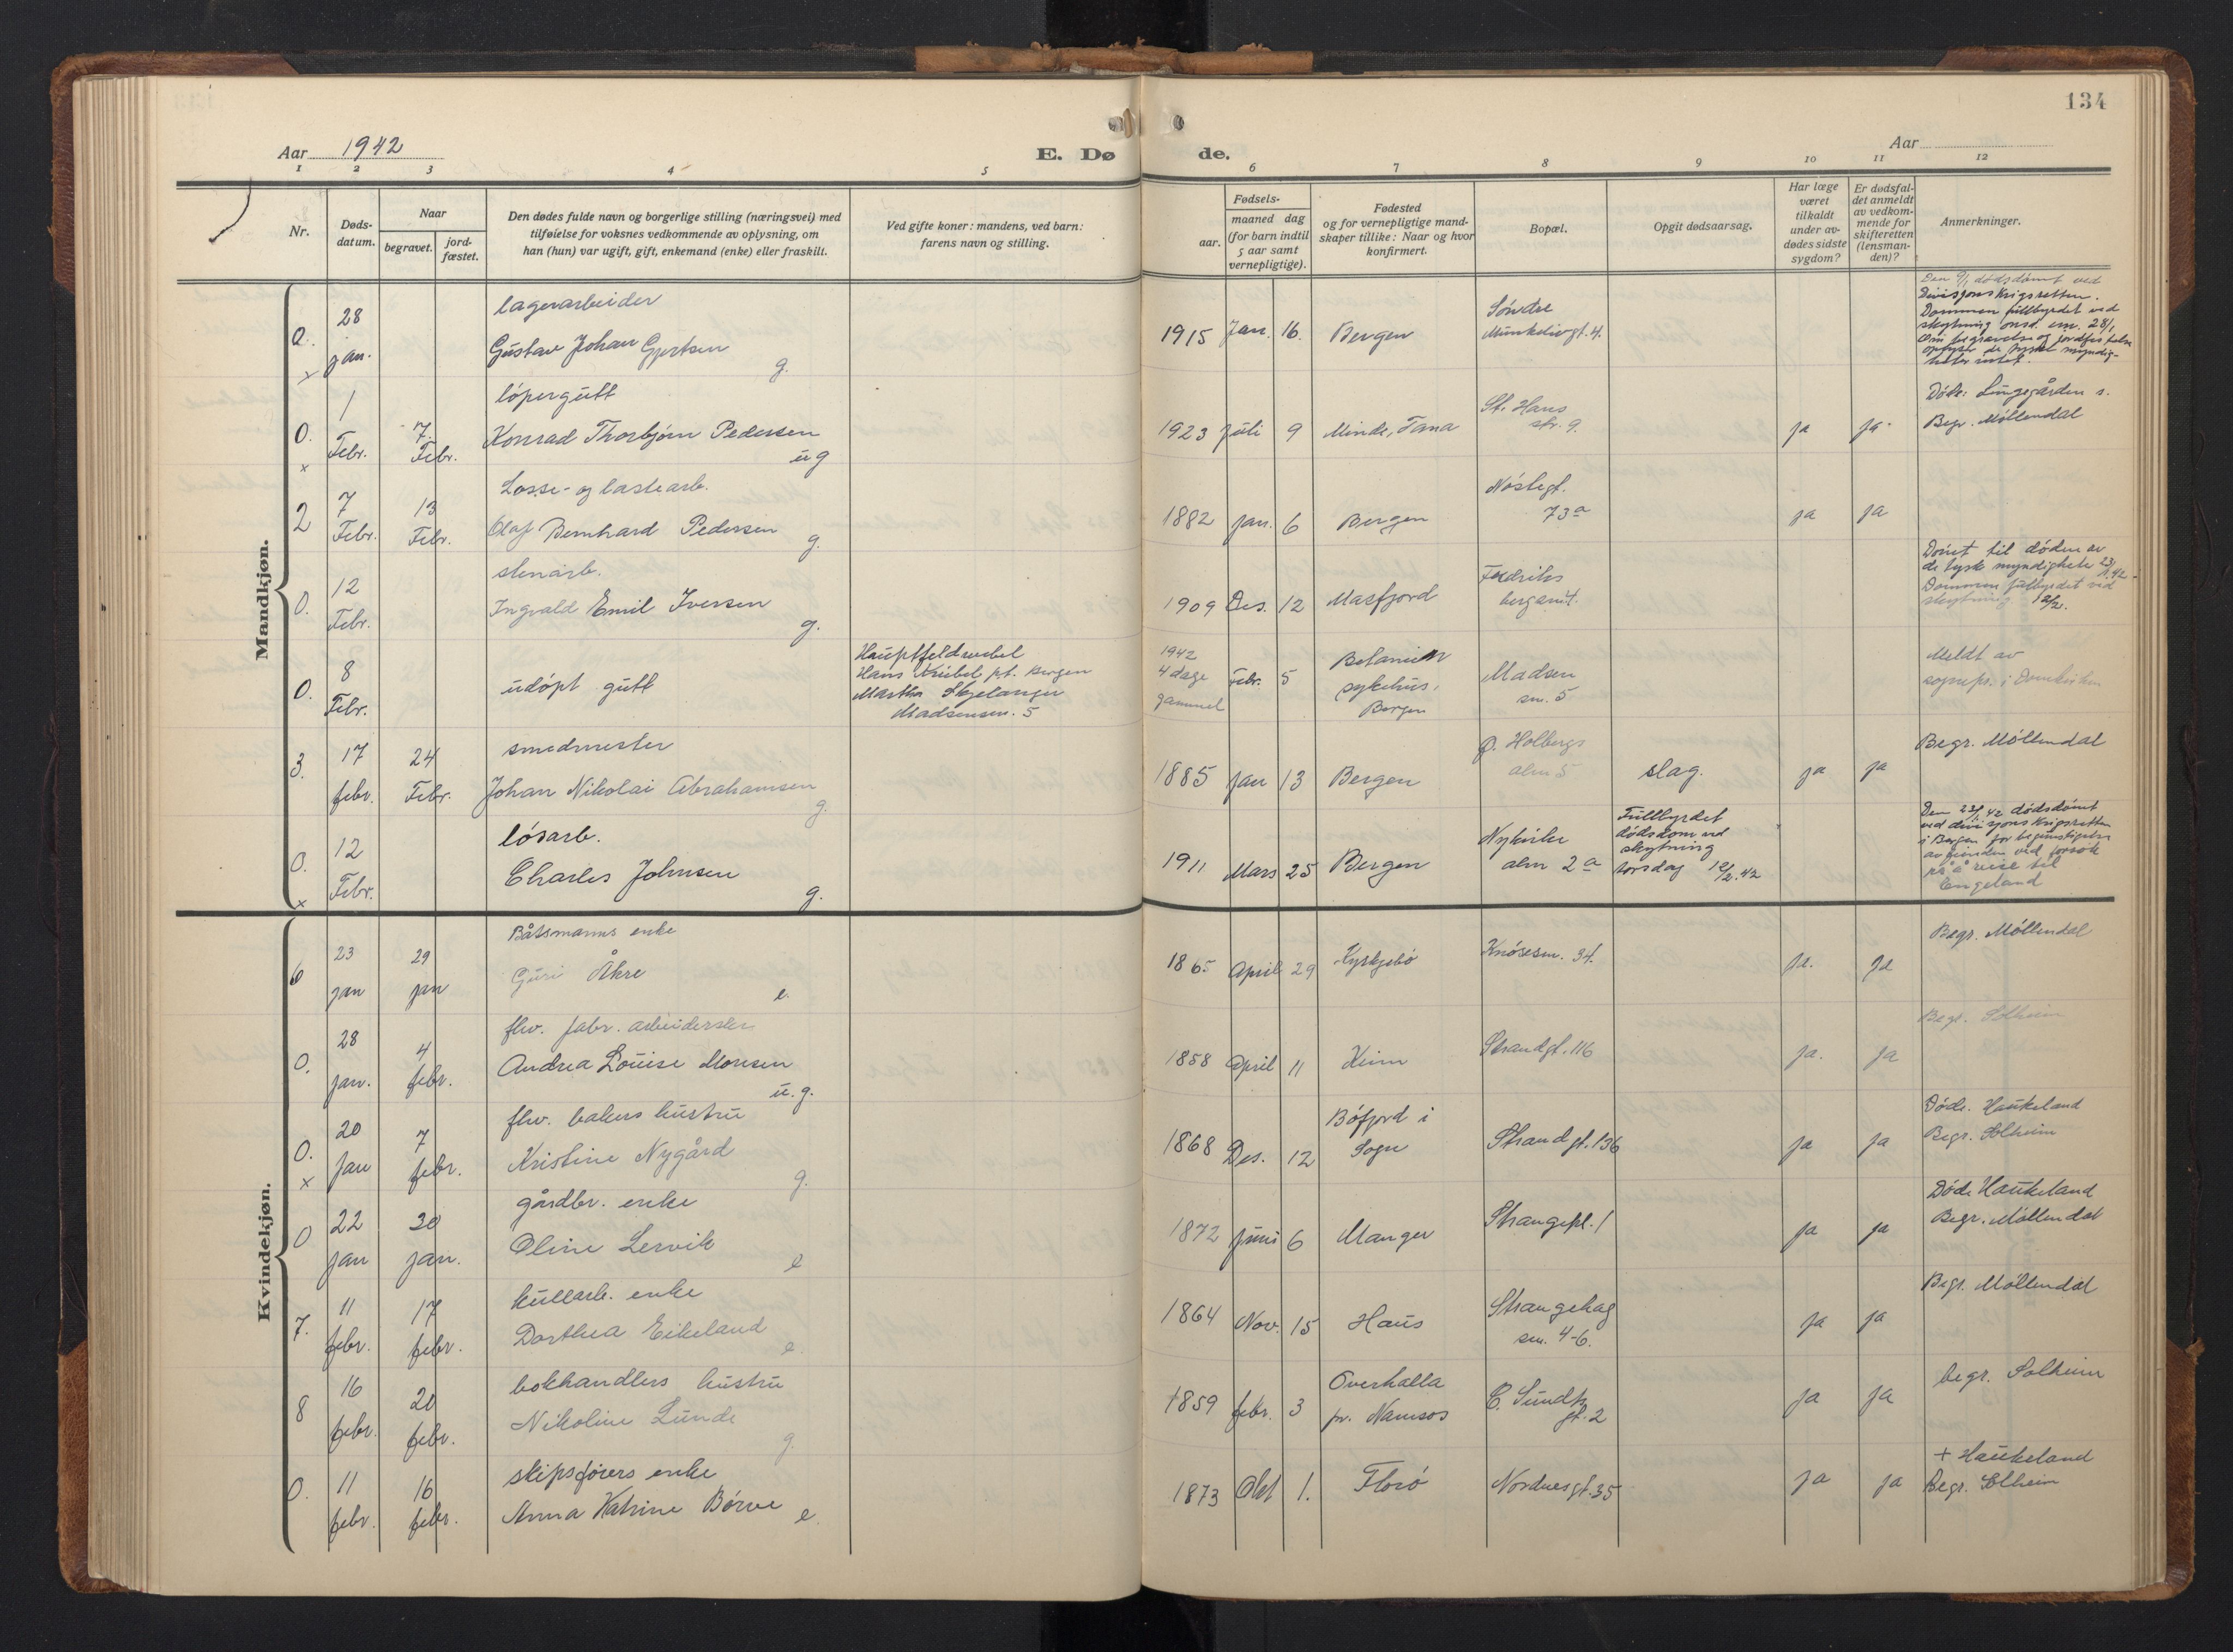 134
Aar 1942
E. Dø
de.
Aar
1 2 3 4 5 6 7 8 9 10 11 12
Nr.
Døds-
datum.
Naar
begravet.
jord-
fæstet.
Den dødes fulde navn og borgerlige stilling (næringsvei) med
tilføielse for voksnes vedkommende av oplysning, om
han (hun) var ugift, gift, enkemand (enke) eller fraskilt.
Ved gifte koner: mandens, ved barn:
farens navn og stilling.
Fødsels-
aar.
maaned dag
(for barn indtil
5 aar samt
vernepligtige).
Fødested
og for vernepligtige mand-
skaper tillike: Naar og hvor
konfirmert.
Bopæl.
Opgit dødsaarsag.
Har læge
været
tilkaldt
under av-
dødes sidste
sygdom?
Er dødsfal-
det anmeldt
av vedkom-
mende for
skifteretten
(lensman-
den)?
Anmerkninger.
Mandkjøn.
0. x
28
jan.
lagerarbeider
Gustav Johan Gjertsen
g.
1915 Jan. 16. Bergen
Søndre
Munkelivgt. 4.
Den 9/1 dødsdømt ved
Divisjons Krigsretten.
Dommen fullbyrdet ved
skytning onsd. em. 28/1
Om begravelse og jordfestelse
de tyske myndig-
heter intet.
0. x
1
Febr.
7.
Febr.
løpergutt
Konrad Thorbjørn Pedersen
ug
1923 Juli 9 Minde, Fana
St. Hans
str. 9.
ja ja
Døde: Lungegården s.
Begr. Møllendal
2
7
Febr.
13
Febr.
Losse- og lastearb.
Olaf Bernhard Pedersen
g.
1882 Jan. 6 Bergen
Nøstegt.
73a
ja ja
0.
12
Febr.
stenarb.
Ingvald Emil Iversen
g.
1909 Des. 12 Masfjord
Fredriks
bergsmt.
Dømt til døden av
de tyske myndigheter 23/1.42-
Dommen fullbyrdet ved
skytning 12/2.
0.
8
Febr.
udøpt gutt
Hauptfeldwebel
Hans Kriebel pt. Bergen
Martha Skjelanger
Madsensm. 5
1942
4 dage
gammel
Febr. 5
Betanien
sykehus,
Bergen
Madsen
sm. 5
Meldt av
sognepr. i Domkirken
3.
17
febr.
24
Febr.
smedmester
Johan Nikolai Abrahamsen
g.
1885 Jan 13 Bergen
Holbergs
alm 5
slag.
ja ja
Begr. Møllendal
0. x
12
Febr.
løsarb.
Charles Johnsen
g.
1911 Mars 25 Bergen
Nykirke
alm 2a
Fullbyrdet
dødsdom ved
skytning
torsdag 12/2.42
Den 23/1.42 dødsdømt
ved divisjons Krigsretten
i Bergen for begunstigelse
av fienden ved forsøk
på å reise til
Engeland
Kvindekjøn.
6
23
jan
29
jan
Båtsmanns enke
Guri Åkre
e.
1865 April 29 Kyrkjebø
Knøsesm. 34.
Ja. Ja
Begr. Møllendal
0.
28
jan.
4
febr.
fhv. fabr. arbeiderske
Andrea Louise Monsen
u.g.
1858 April 11 Keim
Strandgt. 116
ja. ja
Begr. Solheim
0. x
20
jan
7
febr.
fhv. bakers hustru
Kristine Nygård
g.
1868 Des. 12
Bøfjord i
Sogn
Strandgt. 136
ja ja
Døde. Haukeland
Begr. Solheim
0
22
jan
30
jan.
gårdbr. enke
Oline Lervik
e
1872 Juni 6 Manger
Strangepl. 1
ja ja
Døde Haukeland
Begr. Møllendal
7.
11
febr.
17
febr.
kullarb. enke
Dorthea Eikeland
e.
1864 Nov. 15 Haus
Strangehag
sm. 4-6.
ja ja
Begr. Møllendal
8
16
febr.
20
febr.
bokhandlers hustru
Nikoline Lunde
g.
1859 febr. 3
Overhalla
pr. Namsos
E. Sundts
gt. 2
ja ja
begr. Solheim
0.
11
febr.
16
febr.
skipsførers enke
Anna Katrine Børve
e.
1873 Okt 1. Florø
Nordnesgt. 35
ja ja
+ Haukeland
Begr. Solheim